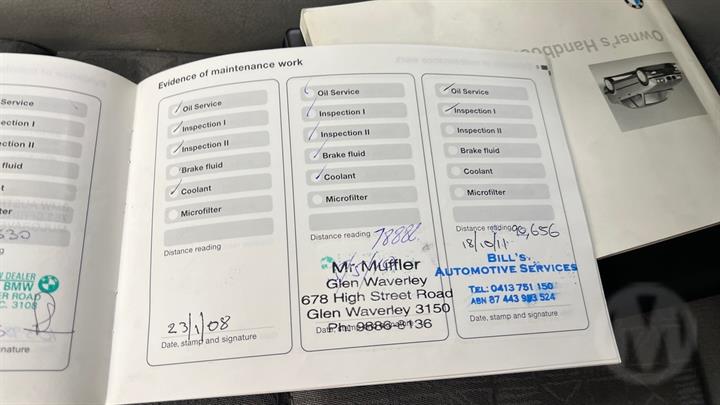 Service
ection I
ction II
fluid
t
ter
W DEALER
BMW
ER ROAD
C. 3108
nature
Evidence of maintenance work
Oil Service
Inspection I
Inspection II
Brake fluid
Coolant
Microfilter
Distance reading
23/1/08
Date, stamp and signature
Oil Service
Inspection I
Inspection II
Brake fluid
Coolant
Microfilter
Distance reading
Mr Muffler
Glen Waverley
678 High Street Road
Glen Waverley 3150
Ph: 9886-8136
Oil Service
Inspection I
Inspection II
Brake fluid
Coolant
Microfilter
Distance reading 90,656
18/10/11
BILL'S
AUTOMOTIVE SERVICES
TEL: 0413 751 150
ABN 87 443 983 524
Date, stamp and signature
Owner's Handbook